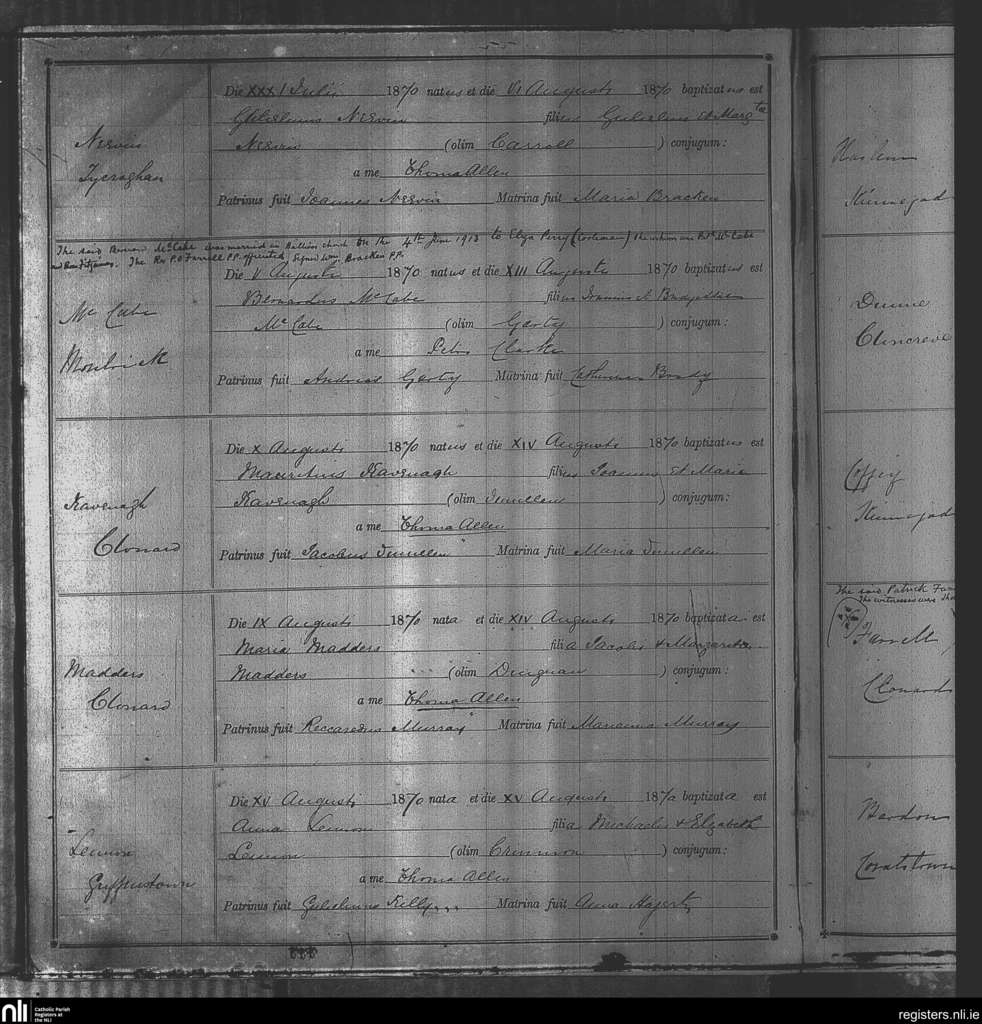 Die XXXI Julii 1870 natus et die VI Augusti 1870 baptizatus est
Gulielmus Nervin filius Gulielmi et Marg tae
Nervin
Nervin (olim Carroll ) conjugum:
Tycroghan
a me Thoma Allen
Patrinus fuit Joannes Nervin Matrina fuit Maria Bracken
The said Bernard McCabe was married in Ballivor church on the 4th June 1913 to Eliza Perry
and Rose Fitzsimons. The Rev P.O Farrell P.P. officiated, Signed Wm. Bracken P.P.
Die V Augusti 1870 natus et die XIII Augusti 1870 baptizatus est
Bernardus McCabe filius Joannis & Brigittae
McCabe
McCabe (olim Garty ) conjugum:
a me Petro Clarke
Patrinus fuit Andreas Garty Matrina fuit Catherina Brady
Die X Augusti 1870 natus et die XIV Augusti 1870 baptizatus est
Mauritius Kavenagh filius Joannis et Maria
Kavenagh
Kavenagh (olim ) conjugum:
Clonard
a me Thoma Allen
Patrinus fuit Jacobus Matrina fuit Maria
Die IX Augusti 1870 nata et die XIV Augusti 1870 baptizata est
Maria Madders filia Jacobi & Margaritae
Madders
Madders (olim Duignan ) conjugum:
Clonard
a me Thoma Allen
Patrinus fuit Murray Matrina fuit Marianna Murray
Die XV Augusti 1870 nata et die XV Augusti 1870 baptizata est
Anna Lennon filia Michaelis & Elizabeth
Lennon
Lennon (olim Crinnion ) conjugum:
Griffinstown
a me Thoma Allen
Patrinus fuit Gulielmus Kelly Matrina fuit Anna Hagerty
Kinnegad
Dunne
Cloncreve
Coffey
Kinnegad
The said Patrick
The witnesses were
Farrell
Clonard
Bardon
nli Catholic Parish
Registers at
the NLI
registers.nli.ie